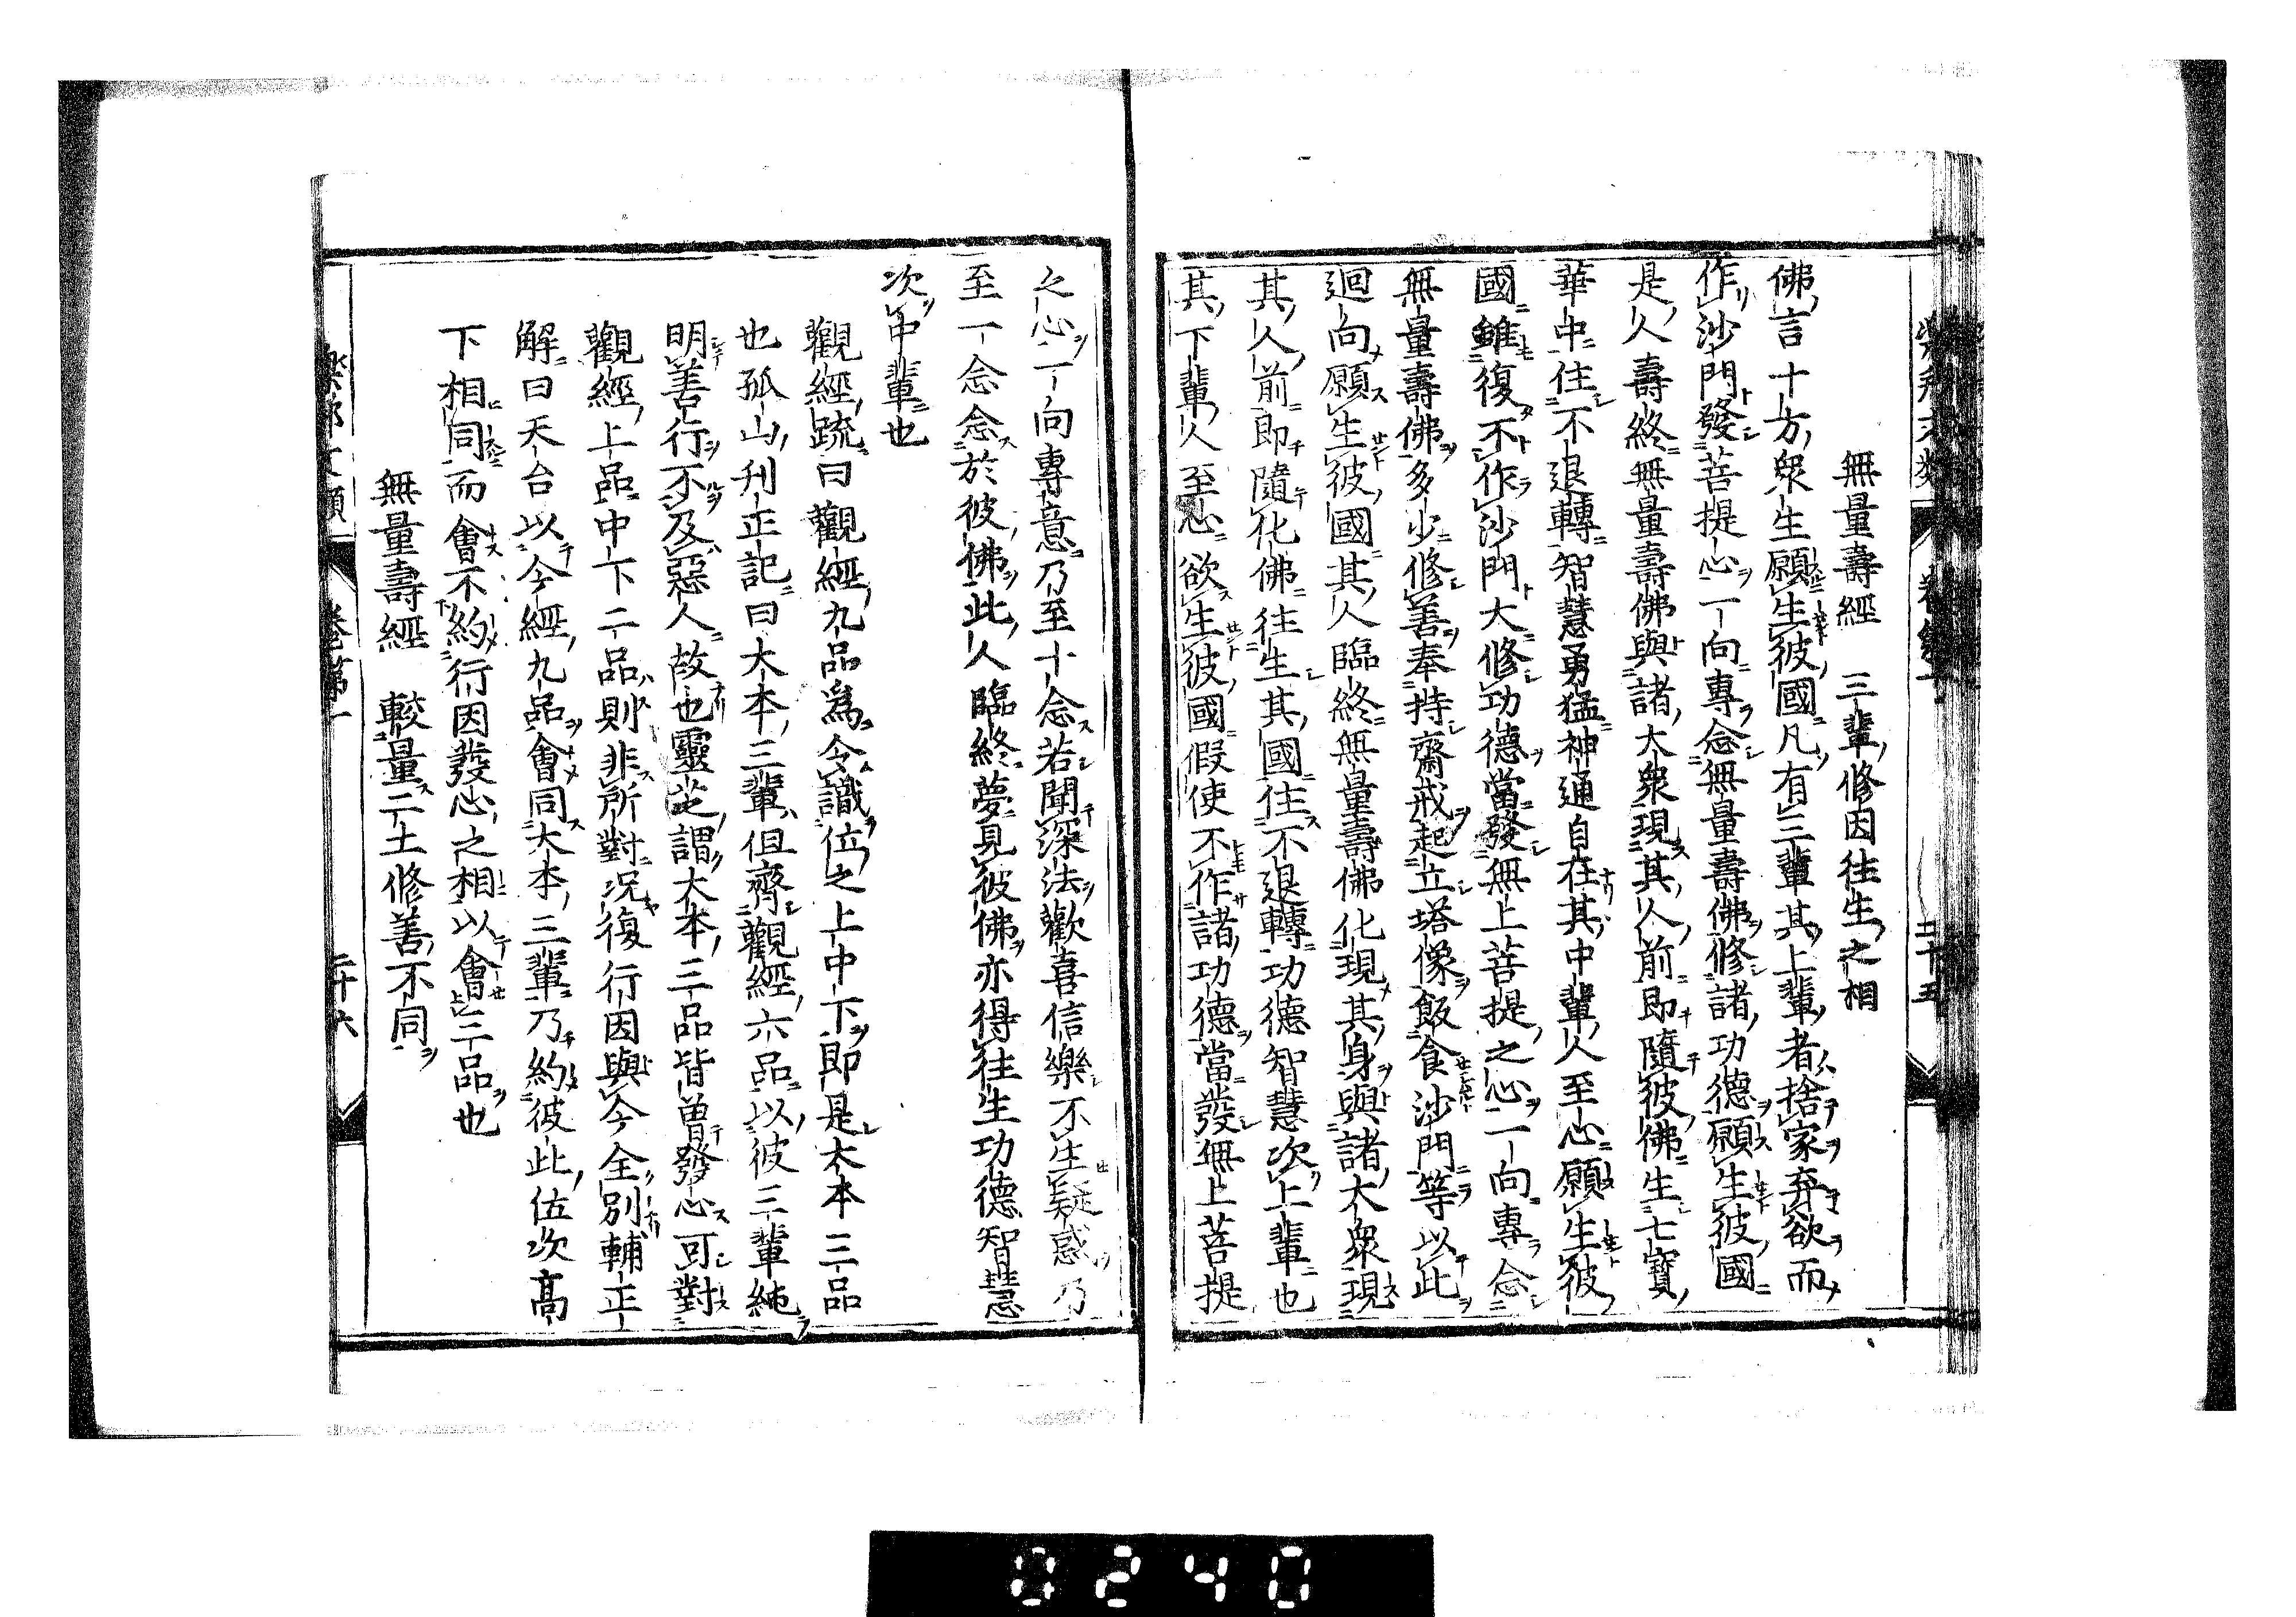 無量壽經　三輩修因往生之相
佛言十方衆生願生彼國凡有三輩其上輩者捨家弃欲而
作沙門發菩提心一向專念無量壽佛修諸功德願生彼國
是人壽終無量壽佛與諸大衆現其人前即隨彼佛生七寶
華中住不退轉智慧勇猛神通自在其中輩人至心願生彼
國雖復不作沙門大修功德當發無上菩提之心一向專念
無量壽佛多少修善奉持齋戒起立塔像飯食沙門等以此
迴向願生彼國其人臨終無量壽佛化現其身與諸大衆現
其人前即隨化佛往生其國住不退轉功德智慧次上輩也
其下輩人至心欲生彼國假使不作諸功德當發無上菩提
之心一向專意乃至十念若聞深法歡喜信樂不生疑惑乃
至一念念於彼佛此人臨終夢見彼佛亦得往生功德智慧
次中輩也
觀經疏曰觀經九品爲令識位之上中下即是大本三品
也孤山刋正記曰大本三輩但齊觀經六品以彼三輩純
明善行不及惡人故也靈芝謂大本三品皆曾發心可對
觀經上品中下二品則非所對况復行因與今全別輔正
解曰天台以今經九品會同大本三輩乃約彼此伍次高
下相同而會不約行因發心之相以會三品也
無量壽經　較量二土修善不同
樂邦文類　卷第一　二十六